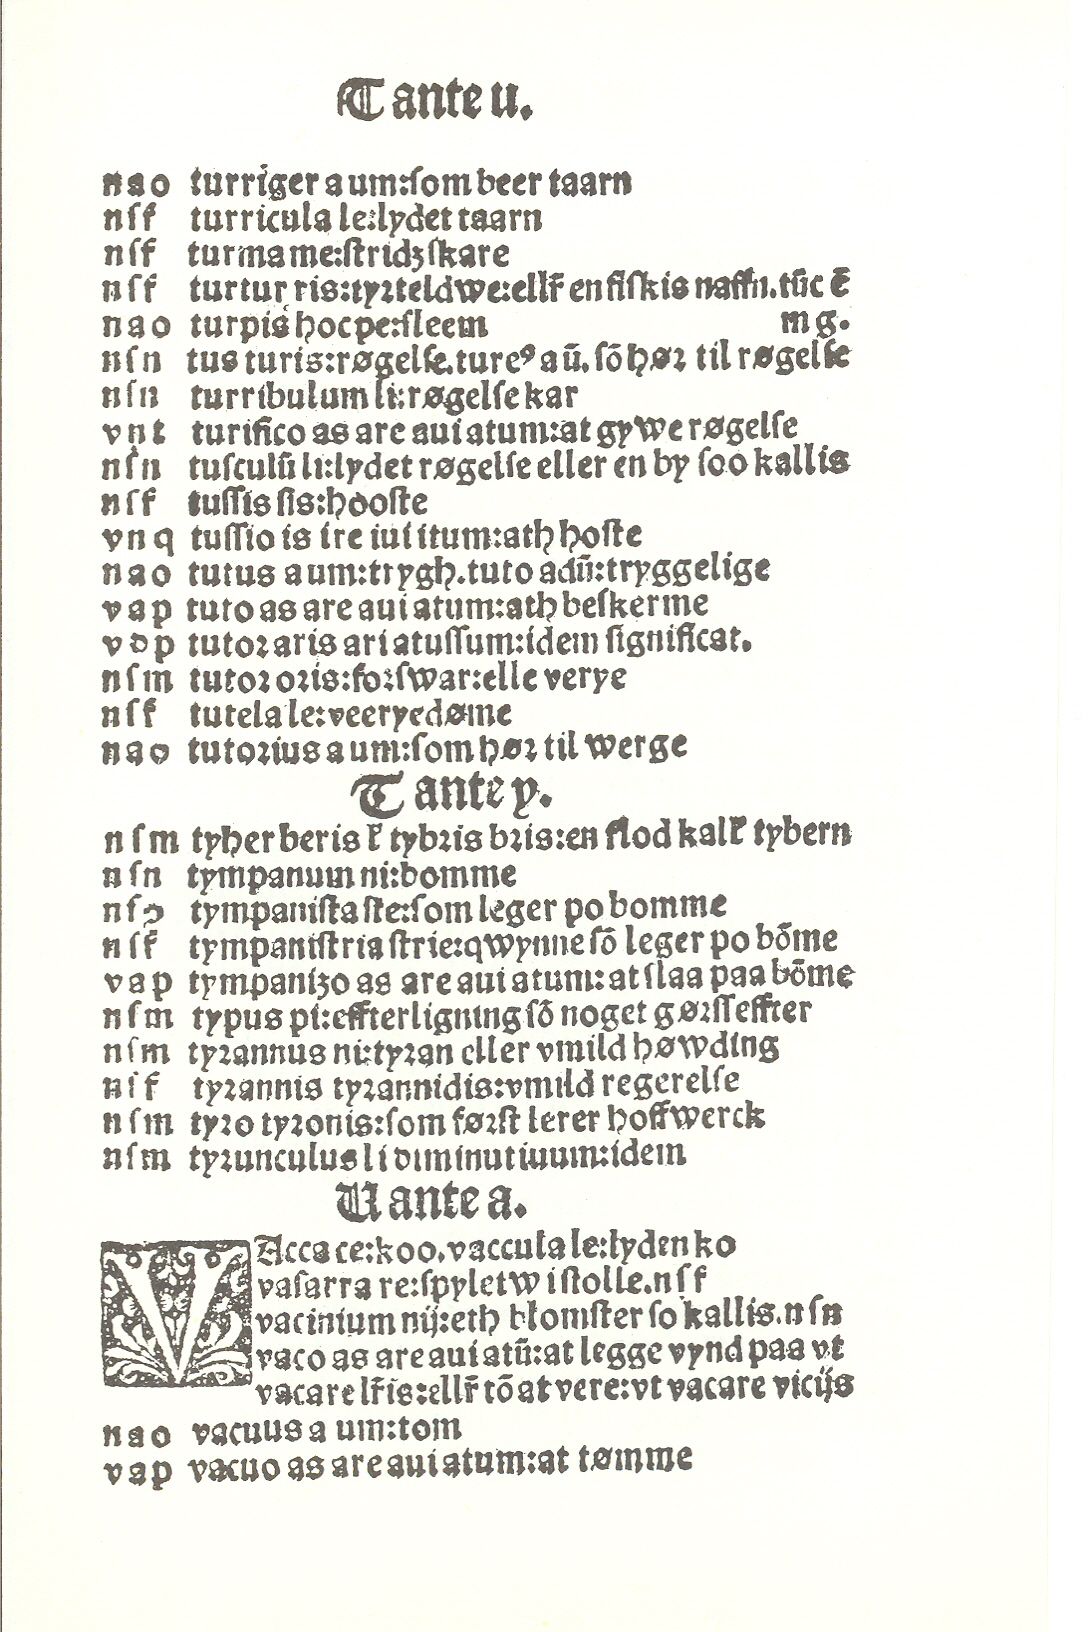 T ante u.
nao turriger a um:ſom beer taarn
nſf turricula le:lydet taarn
nſf turma me:ſtridʒ ſkare
nſf turtur ris:tyꝛteldwe:ellr̄ en fiſkis naffn.tūc ē
nao turpis hoc pe:ſleem mg.
nſn tus turis:røgelſe.tureꝰ a ū. ſō høꝛ til røgelſe
nſn turribulum li:røgelſe kar
vnt turifico as are aui atum:at gywe røgelſe
nſn tuſculū li:lydet røgelſe eller en by ſoo kallis
nſf tuſſis ſis:hooſte
vnq tuſſio is ire iui itum:ath hoſte
nao tutus a um:trygh.tuto adū:tryggelige
vap tuto as are aui atum:ath beſkerme
vdp tutoꝛ aris ari atuſſum:idem ſignificat.
nſm tutoꝛ oꝛis:foꝛſwar:elle verye
nſf tutela le:veeryedøme
nao tutoꝛius a um:ſom høꝛ til werge
T ante y.
nſm tyber beris ł tybꝛis bꝛis:en flod kalł tybern
nſn tympanum ni:bomme
nſɔ tympaniſta ſte:ſom leger po bomme
nſf tympaniſtria ſtrie:qwynne ſō leger po bōme
vap tympanizo as are aui atum:at ſlaa paa bōme
nſm typus pi:effterligning ſō noget gøꝛſſ effter
nſm tyꝛannus ni:tyꝛan eller vmild høwding
nſf tyꝛannis tyꝛannidis:vmild regerelſe
nſm tyꝛo tyꝛonis:ſom føꝛſt lerer hoffwerck
nſm tyꝛunculus li diminutiuum:idem
U ante a.
VAcca ce:koo.vaccula le:lyden ko
vaſarra re:ſpylet w i ſtolle.nſf
vacinium nij:eth blomſter ſo kallis.nſn
vaco as are aui atū:at legge vynd paa vt
vacare lr̄is:ellr̄ tō at vere:vt vacare vicijs
nao vacuus a um:tom
vap vacuo as are aui atum:at tømme